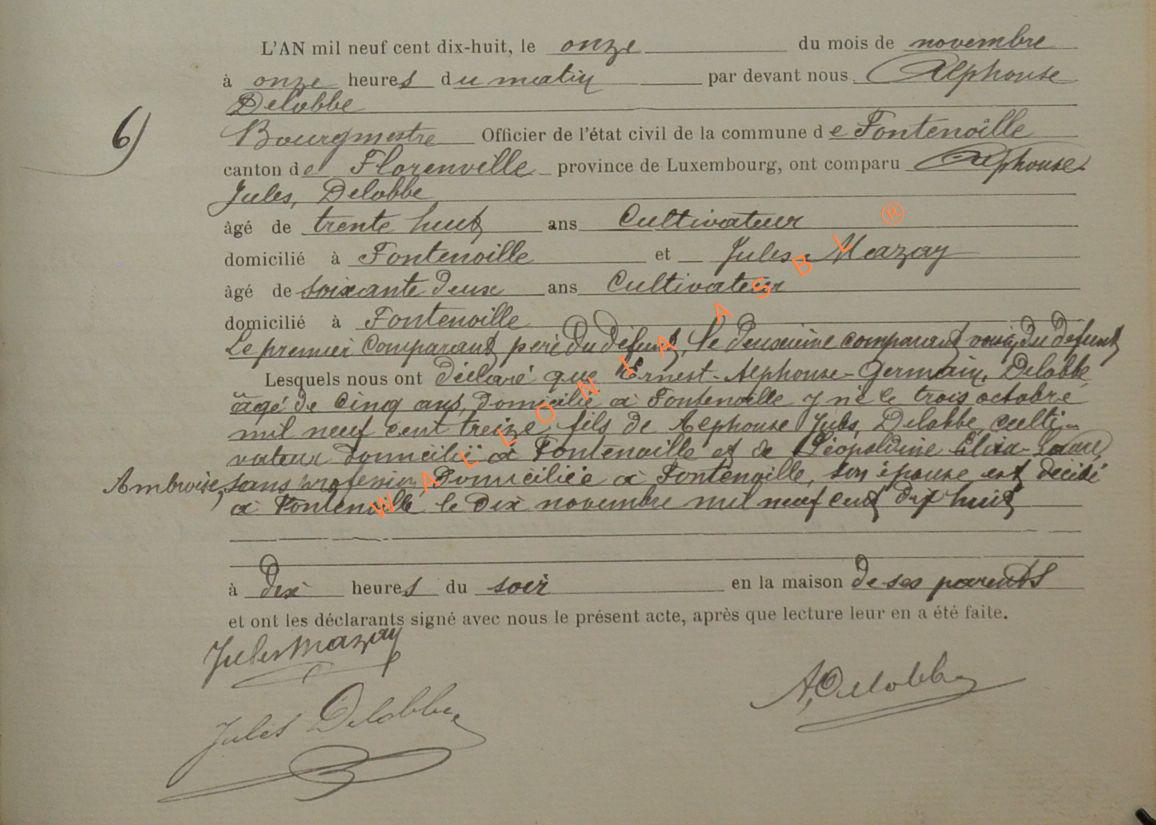 L'AN mil neuf cent dix-huit, le onze du mois de novembre
à onze heures du matin par devant nous Alphonse
Delobbe
6) Bourgmestre Officier de l'état civil de la commune de Fontenoille
canton de Florenville province de Luxembourg, ont comparu Alphonse
Jules, Delobbe
âgé de trente huit ans Cultivateur
domicilié à Fontenoille et Jules Mazay
âgé de soixante deux ans Cultivateur
domicilié à Fontenoille
Le premier comparant père du défunt, le deuxième comparant voisin du défunt
Lesquels nous ont déclaré que Ernest-Alphonse-Germain, Delobbe,
âgé de cinq ans, domicilié à Fontenoille y né le trois octobre
mil neuf cent treize, fils de Alphonse Jules, Delobbe, culti-
vateur domicilié à Fontenoille et de Léopoldine Eliza-Laure,
Ambroise, sans profession domiciliée à Fontenoille, son épouse est décédé
à Fontenoille le dix novembre mil neuf cent dix huit
à dix heures du soir en la maison de ses parents
et ont les déclarants signé avec nous le présent acte, après que lecture leur en a été faite.
Jules Mazay
A, Delobbe
Jules Delobbe
WALLONIA ASBL ®